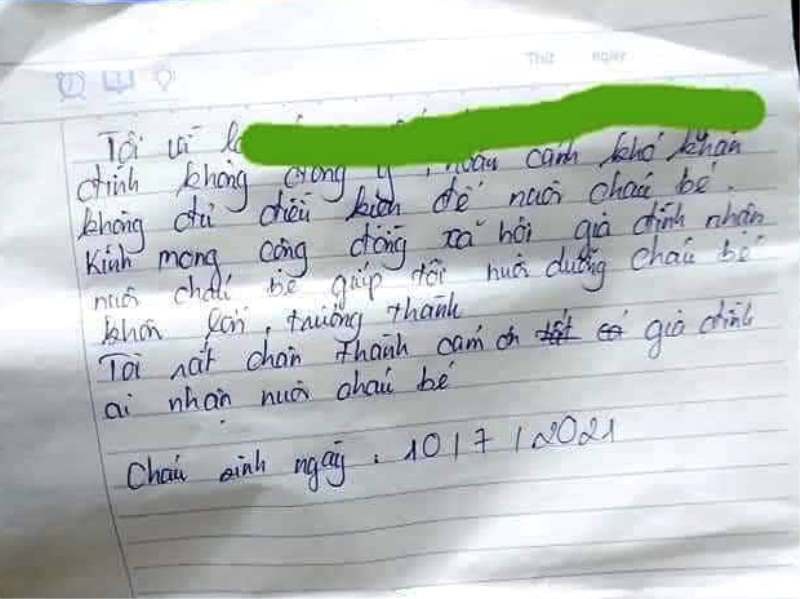 Thứ ngày
Tôi vì l
đình không đồng ý, hoàn cảnh khó khăn
không đủ điều kiện để nuôi cháu bé.
Kính mong cộng đồng xã hội gia đình nhân
nuôi cháu bé giúp tôi nuôi dưỡng cháu bé
khôn lớn, trưởng thành
Tôi rất chân thành cám ơn tất cả gia đình
ai nhận nuôi cháu bé
Cháu sinh ngày: 10/7/2021